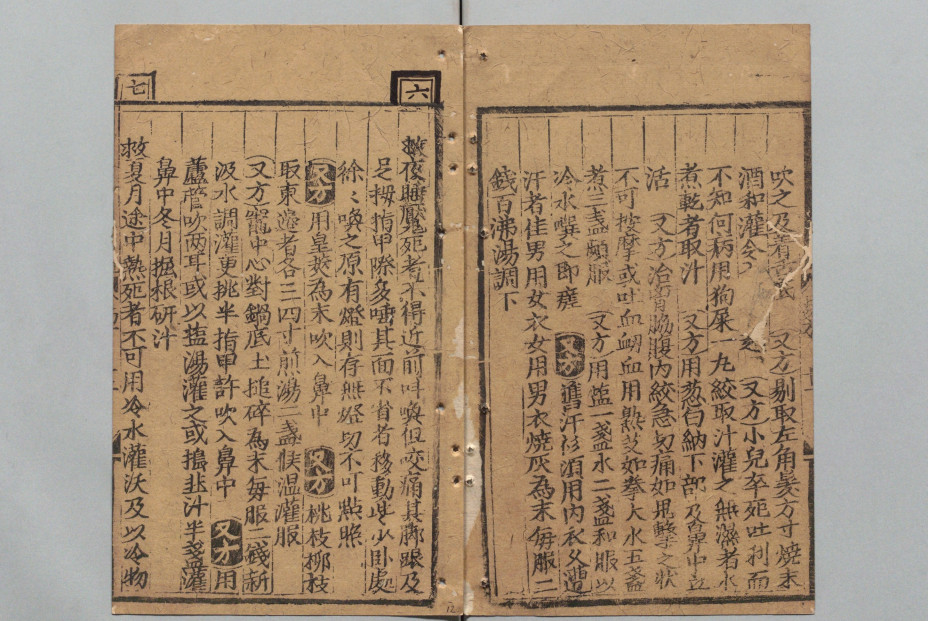 吹之及着 又方剔取左角髮方寸燒末
酒和灌 又方小兒卒死吐利而
不知何病用狗屎一丸絞取汁灌之無濕者水
煮乾者取汁 又方用葱白納下部及鼻中立
活 又方治 脇腹內絞急切痛如鬼擊之狀
不可按摩或吐血衂血用熟艾如拳大水五盞
煮三盞頓服 又方用塩一盞水二盞和服以
冷水噀之即瘥 又方舊汗衫須用內衣久遭
汗者佳男用女衣女用男衣燒灰為末每服二
錢百沸湯調下
六
救夜睡魘死者不得近前呌喚但咬痛其脚跟及
足拇指甲際多唾其面不省者移動些少臥處
徐〻喚之原有燈則存無燈切不可點照
又方用皇莢為末吹入鼻中 又方桃枝柳枝
取東邉者各三四寸煎湯二盞候温灌服
又方竈中心對鍋底土搥碎為末每服二錢新
汲水調灌更挑半指甲許吹入鼻中 又方用
蘆管吹两耳或以塩湯灌之或搗韭汁半盞灌
鼻中冬月掘根研汁
救夏月途中熱死者不可用冷水灌沃及以冷物
七